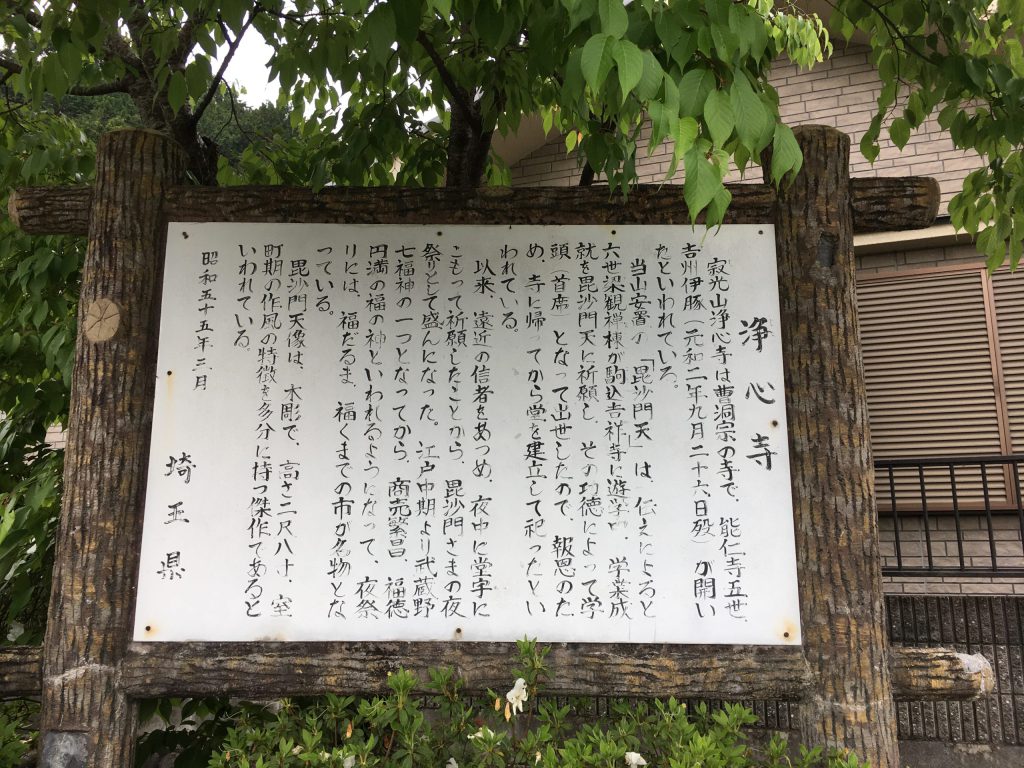 浄心寺
寂光山浄心寺は曹洞宗の寺で、能仁寺五世、
吉州伊豚(元和二年九月二十六日歿)が開い
たといわれている。
当山安置の「毘沙門天」は、伝えによると
六世梁観禅棟が駒込吉祥寺に遊学中、学業成
就を毘沙門天に祈願し、その功徳によって学
頭(首席)となって出世したので、報恩のた
め、寺に帰ってから堂を建立して祀ったとい
われている。
以来、遠近の信者をあつめ、夜中に堂宇に
こもって祈願したことから、毘沙門さまの夜
祭りとして盛んになった。江戸中期より武蔵野
七福神の一つとなってから、商売繁昌、福徳
円満の福の神といわれるようになって、夜祭
りには、福だるま、福くまでの市が名物とな
っている。
毘沙門天像は、木彫で、高さ二尺八寸、室
町期の作風の特徴を多分に持つ傑作であると
いわれている。
昭和五十五年三月
埼玉県